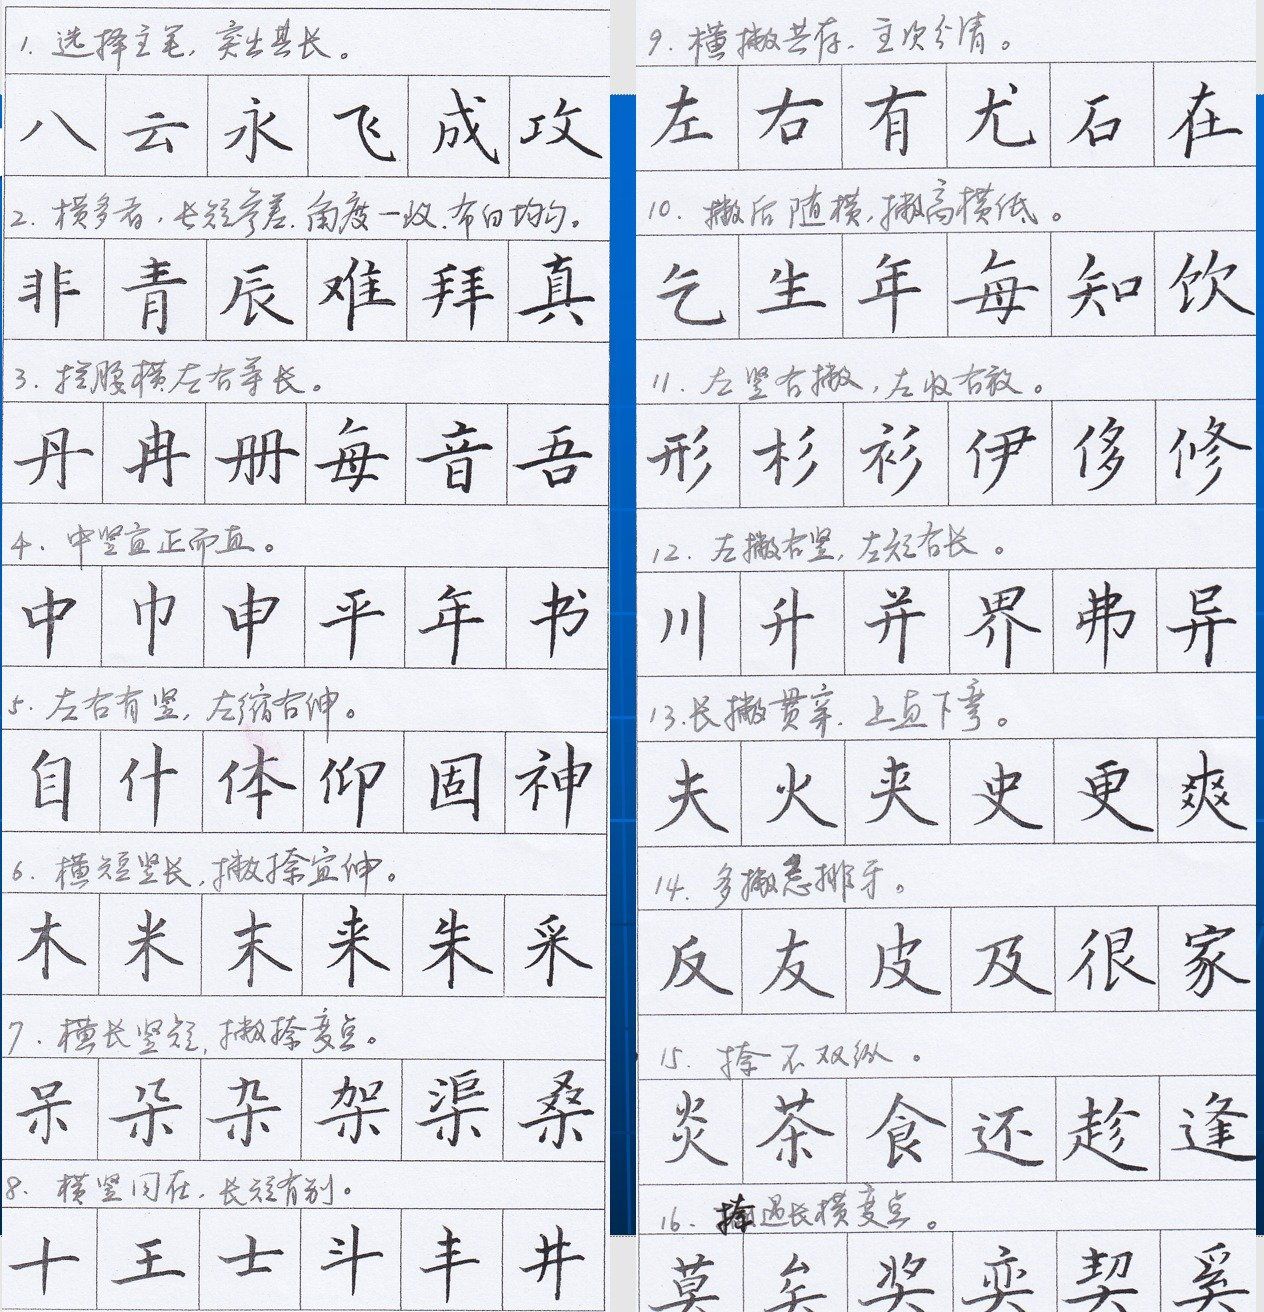 1. 选择主笔，突出其长。
八 云 永 飞 成 攻
2. 横多者，长短参差，角度一致，布白均匀。
非 青 辰 难 拜 真
3. 拦腰横左右等长。
丹 冉 册 每 音 吾
4. 中竖宜正而直。
中 巾 申 平 年 书
5. 左右有竖，左缩右伸。
自 什 体 仰 固 神
6. 横短竖长，撇捺宜伸。
木 米 末 来 朱 采
7. 横长竖短，撇捺变点。
呆 朵 杂 架 渠 桑
8. 横竖同在，长短有别。
十 王 士 斗 丰 井
9. 横撇共存，主次分清。
左 右 有 尤 石 在
10. 撇后随横，撇高横低。
乞 生 年 每 知 饮
11. 左竖右撇，左收右放。
形 杉 衫 伊 侈 修
12. 左撇右竖，左短右长。
川 升 并 界 弗 异
13. 长撇贯穿，上直下弯。
夫 火 夹 史 更 爽
14. 多撇忌排牙。
反 友 皮 及 很 家
15. 捺不双纵。
炎 茶 食 还 趁 逢
16. 捺遇长横变点。
莫 矣 奖 奕 契 奚